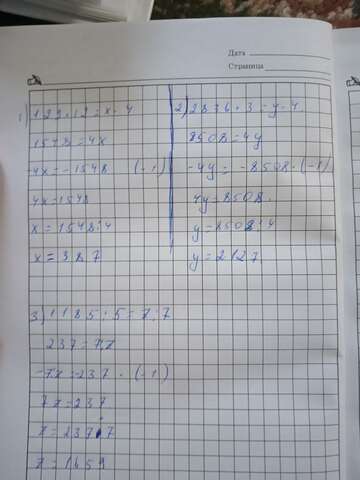 Дата
Страница
1) 129 · 12 = x · 4
1548 = 4x
-4x = -1548 (-1)
4x = 1548
x = 1548 : 4
x = 387
2) 2836 · 3 = y · 4
8508 = 4y
-4y = -8508 · (-1)
4y = 8508
y = 8508 : 4
y = 2127
3) 1185 : 5 = z : 7
237 = 7z
-7z = 237 · (-1)
7z = 237
z = 237 · 7
z = 1659